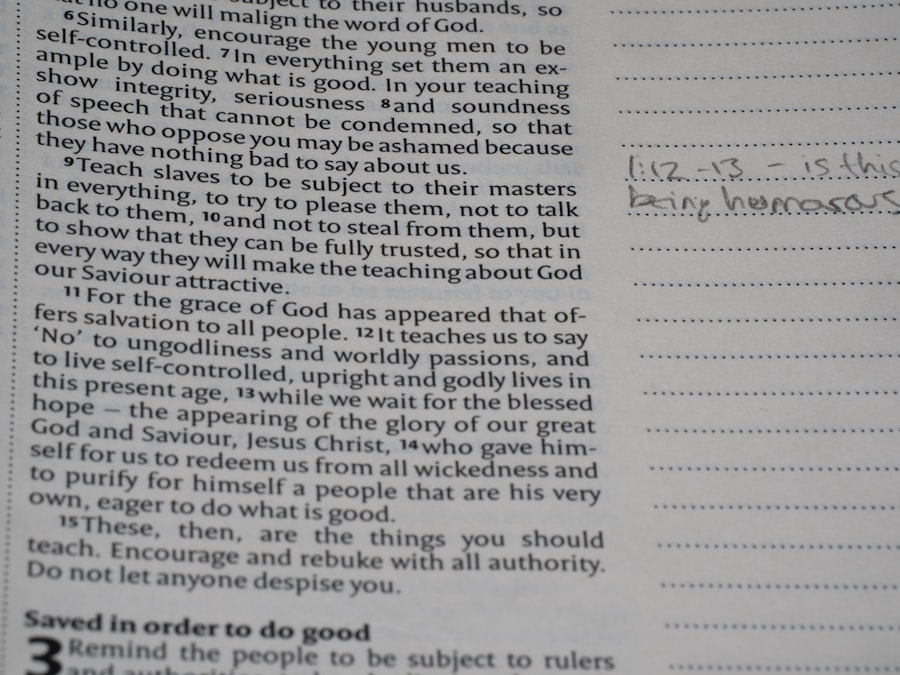 subject to their husbands, so
no one will malign the word of God.
6 Similarly, encourage the young men to be
self-controlled. 7 In everything set them an ex-
ample by doing what is good. In your teaching
show integrity, seriousness 8 and soundness
of speech that cannot be condemned, so that
those who oppose you may be ashamed because
they have nothing bad to say about us.
9 Teach slaves to be subject to their masters
in everything, to try to please them, not to talk
back to them, 10 and not to steal from them, but
to show that they can be fully trusted, so that in
every way they will make the teaching about God
our Saviour attractive.
11 For the grace of God has appeared that of-
fers salvation to all people. 12 It teaches us to say
‘No’ to ungodliness and worldly passions, and
to live self-controlled, upright and godly lives in
this present age, 13 while we wait for the blessed
hope – the appearing of the glory of our great
God and Saviour, Jesus Christ, 14 who gave him-
self for us to redeem us from all wickedness and
to purify for himself a people that are his very
own, eager to do what is good.
15 These, then, are the things you should
teach. Encourage and rebuke with all authority.
Do not let anyone despise you.
Saved in order to do good
3 Remind the people to be subject to rulers
1:12-13 - is this
being